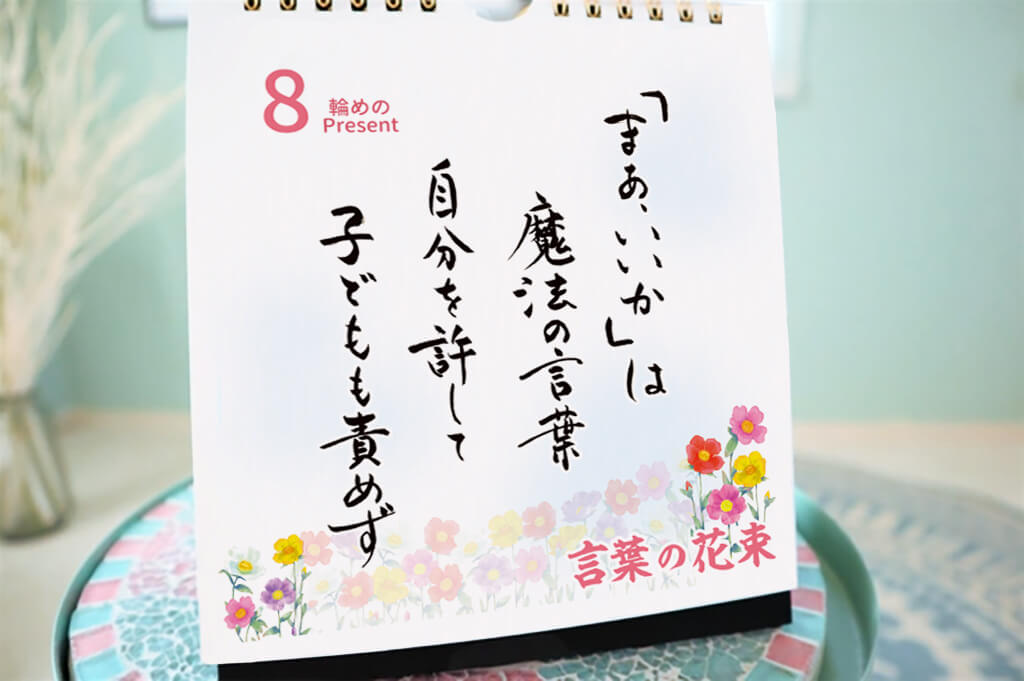 8
輪めの
Present
「まあ、いいか」は
魔法の言葉
自分を許して
子どもも責めず
言葉の花束